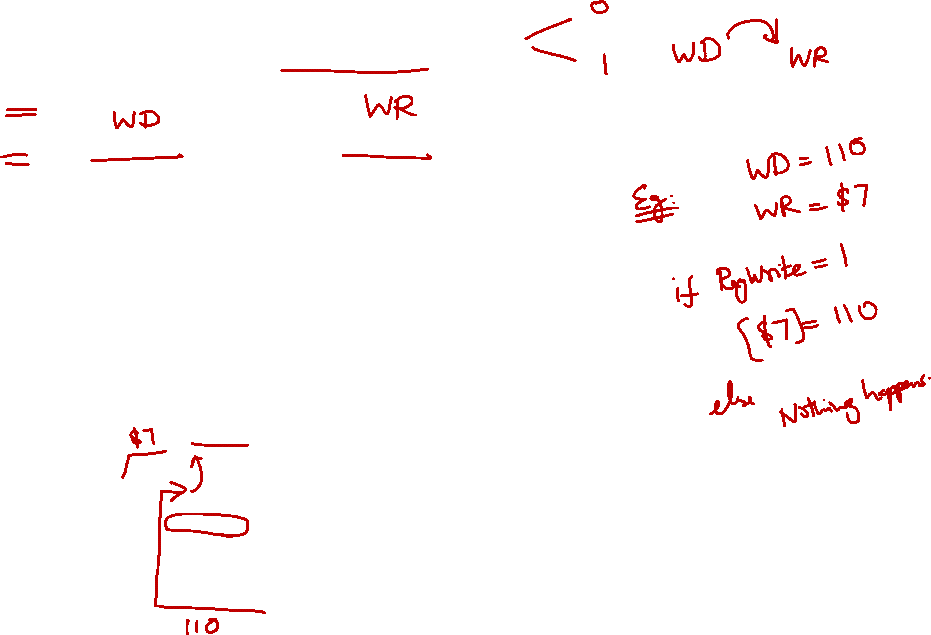 0
1
WD WR
= WD WR
=
Eg: WD = 110
WR = $7
if RegWrite = 1
[$7] = 110
else Nothing happens.
$7
110